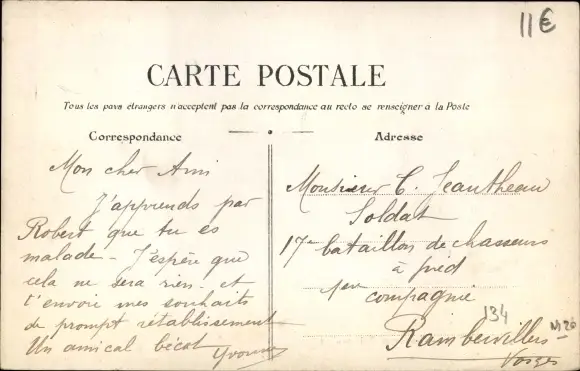 11€
CARTE POSTALE
Tous les pays étrangers n'acceptent pas la correspondance au recto se renseigner à la Poste
Correspondance
Mon cher Ami
J'apprends par
Robert que tu es
malade - J'espère que
cela ne sera rien - et
t'envoie mes souhaits
de prompt rétablissement
Un amical bécot Yvonne
Adresse
Monsieur C. Jeantheau
Soldat
17e bataillon de chasseurs
à pied
1ere compagnie
134
Rambervillers
Vosges